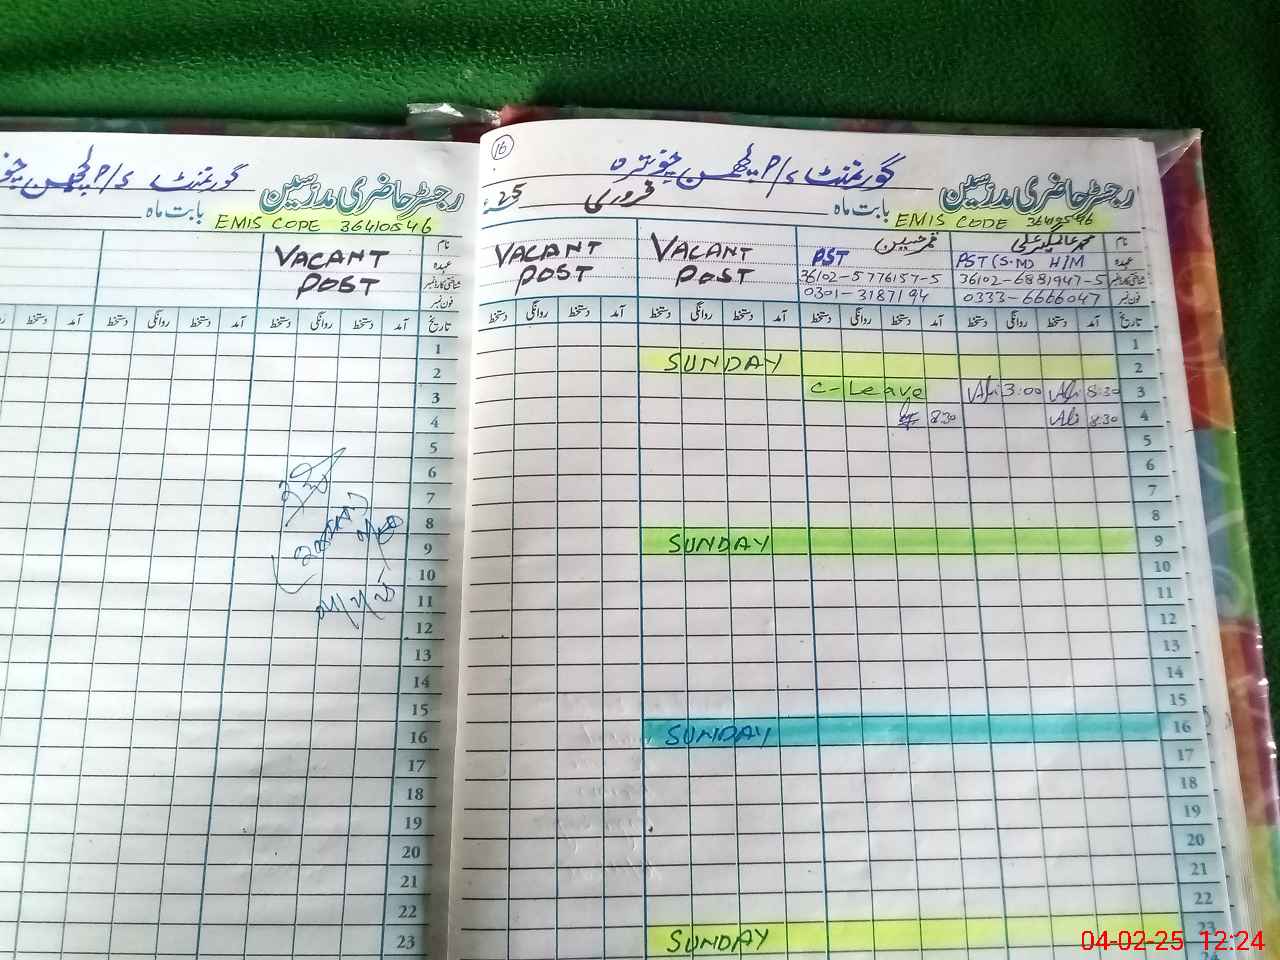 16
گورنمنٹ P/S چھن چونترہ
رجسٹر حاضری مدرسین
بابت ماہ فروری 25
EMIS CODE 36410546
نام محمد عالمگیر علی قمر حسین VACANT POST VACANT POST
عہدہ PST (S.M) H/M PST
شناختی کارڈ نمبر 36102-6881947-5 36102-5776157-5
فون نمبر 0333-6666047 0301-3187194
تاریخ آمد دستخط روانگی دستخط آمد دستخط روانگی دستخط آمد دستخط روانگی دستخط آمد دستخط روانگی دستخط
1
2 SUNDAY
3 8:30 Ali 3:00 Ali C-Leave
4 8:30 Ali 8:30
5
6
7
8
9 SUNDAY
10
11
12
13
14
15
16 SUNDAY
17
18
19
20
21
22
23 SUNDAY
24
گورنمنٹ P/S چھن
رجسٹر حاضری مدرسین
بابت ماہ
EMIS CODE 36410546
نام VACANT POST
عہدہ
شناختی کارڈ نمبر
فون نمبر
تاریخ آمد دستخط روانگی دستخط آمد دستخط روانگی دستخط آمد
1
2
3
4
5
6
7
8
9
10
11
12
13
14
15
16
17
18
19
20
21
22
23
04-02-25 12:24